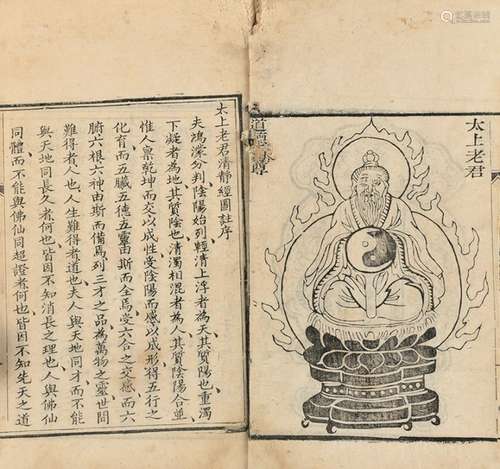 太上老君
太上老君清靜經圖註序
夫鴻濛分判陰陽始列輕清上浮者為天其質陽也重濁
下凝者為地其質陰也清濁相混者為人其質陰陽合並
惟人稟乾坤而交以成性受陰陽而感以成形得五行之
化育而五臟五德五靈由斯而全焉受六合之交感而六
腑六根六神由斯而備焉列三才之品為萬物之靈世間
難得者人也人生難得者道也夫人與天地同才而不能
與天地同長久者何也皆因不知消長之理也人與佛仙
同體而不能與佛仙同超證者何也皆因不知先天之道